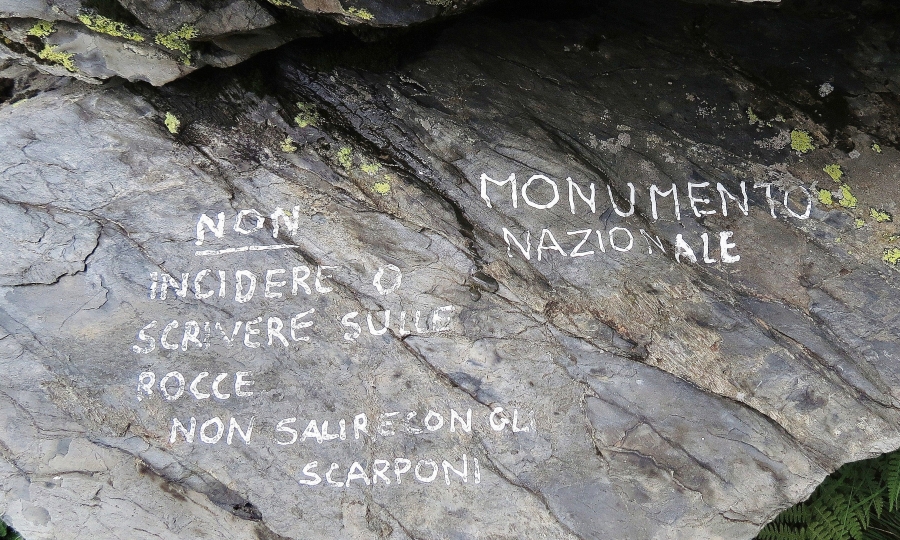 MONUMENTO
NAZIONALE
NON
INCIDERE O
SCRIVERE SULLE
ROCCE
NON SALIRE CON GLI
SCARPONI